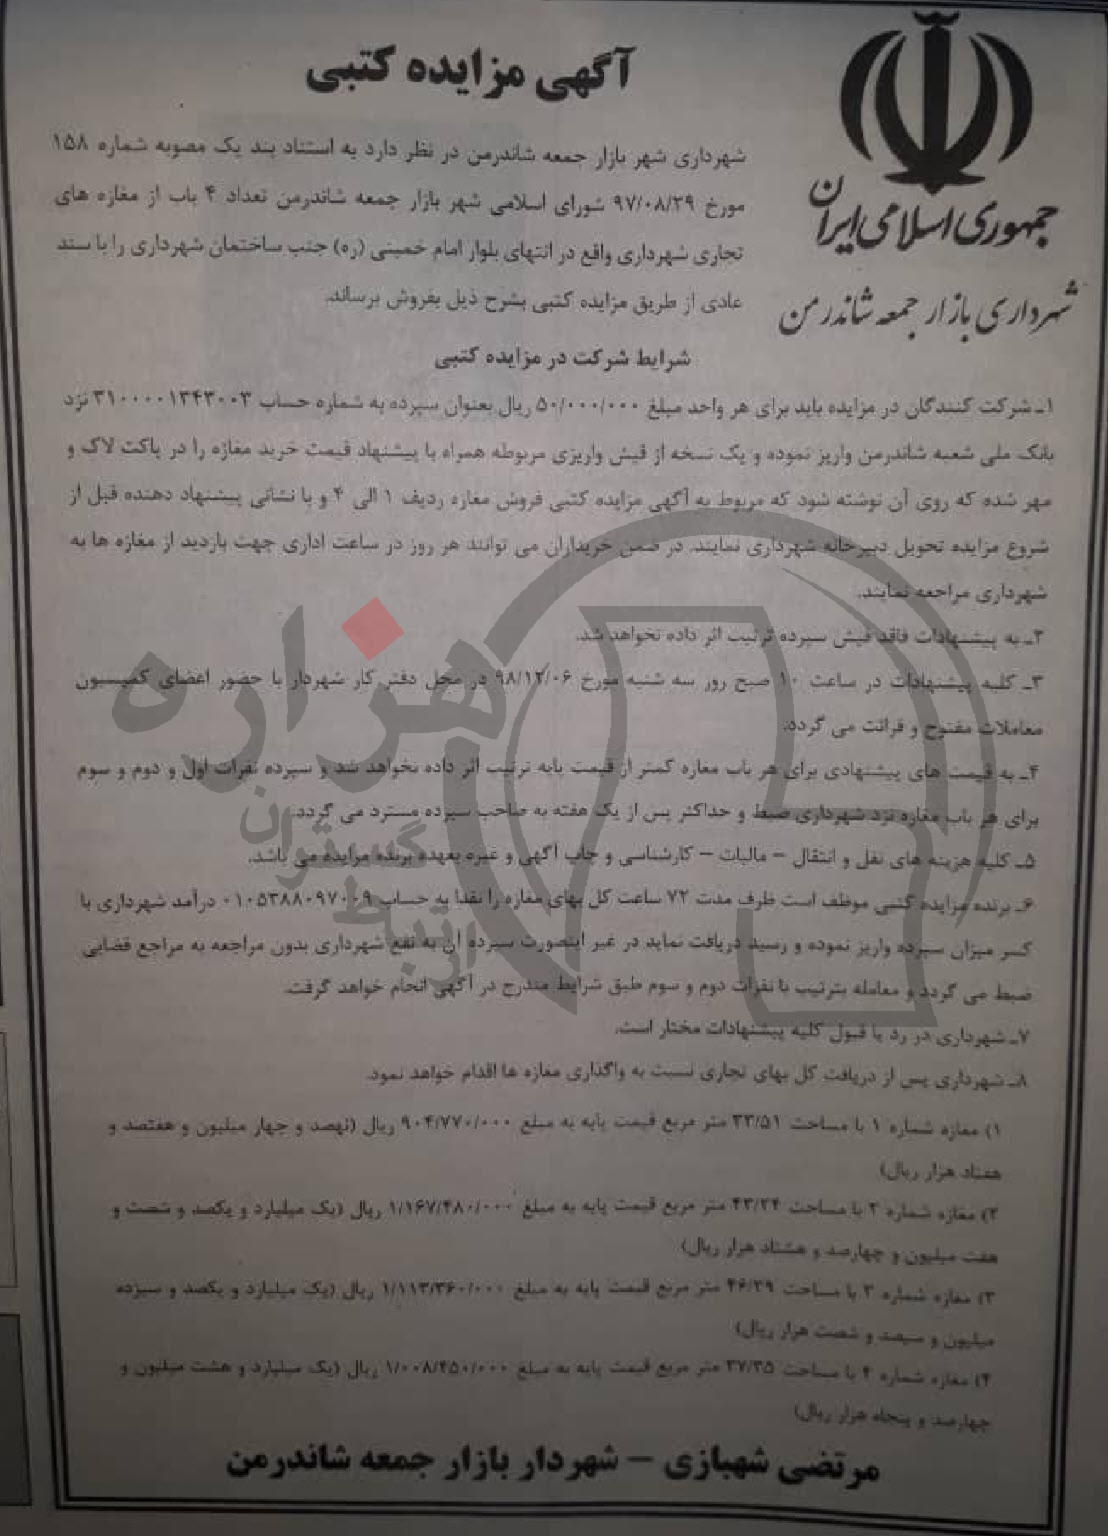 جمهوری اسلامی ایران
شهرداری بازار جمعه شاندرمن
آگهی مزایده کتبی
شهرداری شهر بازار جمعه شاندرمن در نظر دارد به استناد بند یک مصوبه شماره ۱۵۸
مورخ ۹۷/۰۸/۲۹ شورای اسلامی شهر بازار جمعه شاندرمن تعداد ۴ باب از مغازه های
تجاری شهرداری واقع در انتهای بلوار امام خمینی (ره) جنب ساختمان شهرداری را با سند
عادی از طریق مزایده کتبی بشرح ذیل بفروش برساند.
شرایط شرکت در مزایده کتبی
۱ـ شرکت کنندگان در مزایده باید برای هر واحد مبلغ ۵۰/۰۰۰/۰۰۰ ریال بعنوان سپرده به شماره حساب ۳۱۰۰۰۰۱۳۴۳۰۰۳ نزد
بانک ملی شعبه شاندرمن واریز نموده و یک نسخه از فیش واریزی مربوطه همراه با پیشنهاد قیمت خرید مغازه را در پاکت لاک و
مهر شده که روی آن نوشته شود که مربوط به آگهی مزایده کتبی فروش مغازه ردیف ۱ الی ۴ و با نشانی پیشنهاد دهنده قبل از
شروع مزایده تحویل دبیرخانه شهرداری نمایند. در ضمن خریداران می توانند هر روز در ساعت اداری جهت بازدید از مغازه ها به
شهرداری مراجعه نمایند.
۲ـ به پیشنهادات فاقد فیش سپرده ترتیب اثر داده نخواهد شد.
۳ـ کلیه پیشنهادات در ساعت ۱۰ صبح روز سه شنبه مورخ ۹۸/۱۲/۰۶ در محل دفتر کار شهردار با حضور اعضای کمیسیون
معاملات مفتوح و قرائت می گردد.
۴ـ به قیمت های پیشنهادی برای هر باب مغازه کمتر از قیمت پایه ترتیب اثر داده نخواهد شد و سپرده نفرات اول و دوم و سوم
برای هر باب مغازه نزد شهرداری ضبط و حداکثر پس از یک هفته به صاحب سپرده مسترد می گردد.
۵ـ کلیه هزینه های نقل و انتقال – مالیات – کارشناسی و چاپ آگهی و غیره بعهده برنده مزایده می باشد.
۶ـ برنده مزایده کتبی موظف است ظرف مدت ۷۲ ساعت کل بهای مغازه را نقدا به حساب ۰۱۰۵۳۸۸۰۹۷۰۰۹ درآمد شهرداری با
کسر میزان سپرده واریز نموده و رسید دریافت نماید در غیر اینصورت سپرده آن به نفع شهرداری بدون مراجعه به مراجع قضایی
ضبط می گردد و معامله بترتیب با نفرات دوم و سوم طبق شرایط مندرج در آگهی انجام خواهد گرفت.
۷ـ شهرداری در رد یا قبول کلیه پیشنهادات مختار است.
۸ـ شهرداری پس از دریافت کل بهای تجاری نسبت به واگذاری مغازه ها اقدام خواهد نمود.
۱) مغازه شماره ۱ با مساحت ۳۳/۵۱ متر مربع قیمت پایه به مبلغ ۹۰۴/۷۷۰/۰۰۰ ریال (نهصد و چهار میلیون و هفتصد و
هفتاد هزار ریال)
۲) مغازه شماره ۲ با مساحت ۴۳/۲۴ متر مربع قیمت پایه به مبلغ ۱/۱۶۷/۴۸۰/۰۰۰ ریال (یک میلیارد و یکصد و شصت و
هفت میلیون و چهارصد و هشتاد هزار ریال)
۳) مغازه شماره ۳ با مساحت ۴۶/۳۹ متر مربع قیمت پایه به مبلغ ۱/۱۱۳/۳۶۰/۰۰۰ ریال (یک میلیارد و یکصد و سیزده
میلیون و سیصد و شصت هزار ریال)
۴) مغازه شماره ۴ با مساحت ۳۷/۳۵ متر مربع قیمت پایه به مبلغ ۱/۰۰۸/۴۵۰/۰۰۰ ریال (یک میلیارد و هشت میلیون و
چهارصد و پنجاه هزار ریال)
مرتضی شهبازی – شهردار بازار جمعه شاندرمن
هزاره
گستران
ارتباط